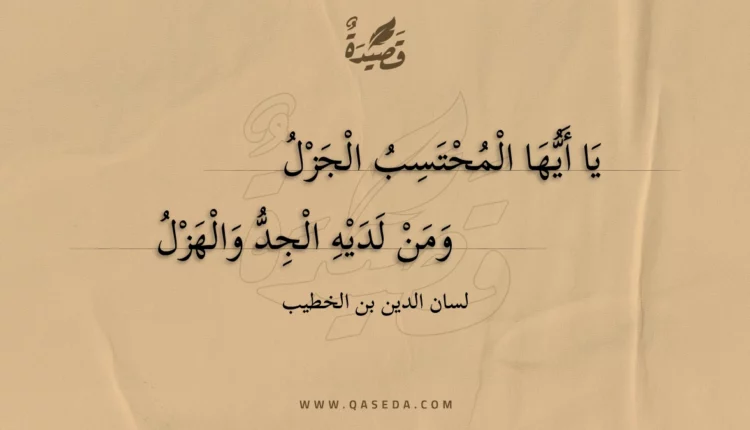 قَصِيدَةٌ
يَا أَيُّهَا الْمُحْتَسِبُ الْجَزْلُ
وَمَنْ لَدَيْهِ الْجِدُّ وَالْهَزْلُ
لسان الدين بن الخطيب
WWW.QASEDA.COM